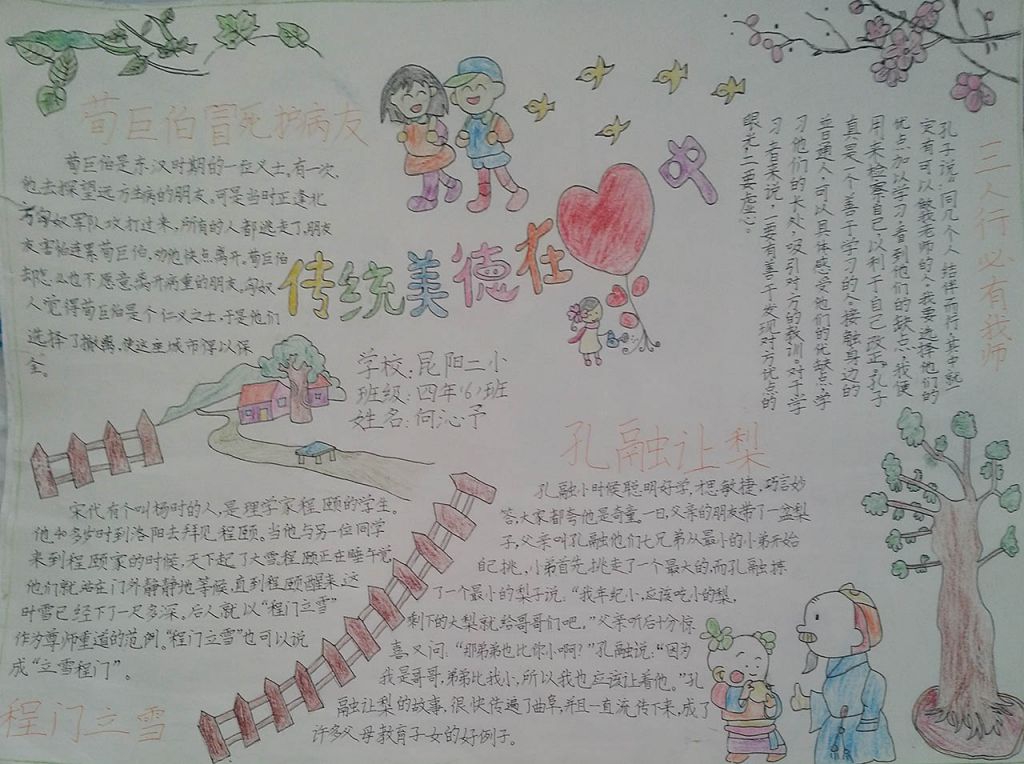 荀巨伯冒死护病友
荀巨伯是东汉时期的一位义士,有一次,
他去探望远方生病的朋友。可是当时正逢北
方匈奴军队攻打过来,所有的人都逃走了,朋友
友害怕连累荀巨伯,劝他快点离开。荀巨伯
却怎么也不愿意离开病重的朋友。匈奴
人觉得荀巨伯是个仁义之士,于是他们
选择了撤离,使这座城市得以保
全。
传统美德在
中
学校:昆阳二小
班级:四年(6)班
姓名:何沁予
三人行必有我师
孔子说:同几个人结伴而行,其中就
定有可以做我老师的人,我要选择他们的
优点加以学习,看到他们的缺点,我便
用来检察自己,以利于自己改正,孔子
真是一个善于学习的人,接触身边的
普通人,可以具体感受他们的优缺点,学
习他们的长处,吸引对方的教训。对于学
习者来说,一要有善于发现对方优点的
眼光,二要虚心。
宋代有个叫杨时的人,是理学家程颐的学生。
他四十多岁时到洛阳去拜见程颐。当他与另一位同学
来到程颐家的时候,天下起了大雪,程颐正在睡午觉,
他们就站在门外静静地等候,直到程颐醒来,这
时雪已经下了一尺多深。后人就以“程门立雪”
作为尊师重道的范例。“程门立雪”也可以说
成“立雪程门”。
程门立雪
孔融让梨
孔融小时候聪明好学,才思敏捷,巧言妙
答,大家都夸他是奇童。一日,父亲的朋友带了一盆梨
子,父亲叫孔融他们七兄弟从最小的小弟开始
自己挑,小弟首先挑走了一个最大的,而孔融拣
了一个最小的梨子说:“我年纪小,应该吃小的梨,
剩下的大梨就给哥哥们吧。”父亲听后十分惊
喜,又问:“那弟弟也比你小啊?”孔融说:“因为
我是哥哥,弟弟比我小,所以我也应该让着他。”孔
融让梨的故事,很快传遍了曲阜,并且一直流传下来,成了
许多父母教育子女的好例子。